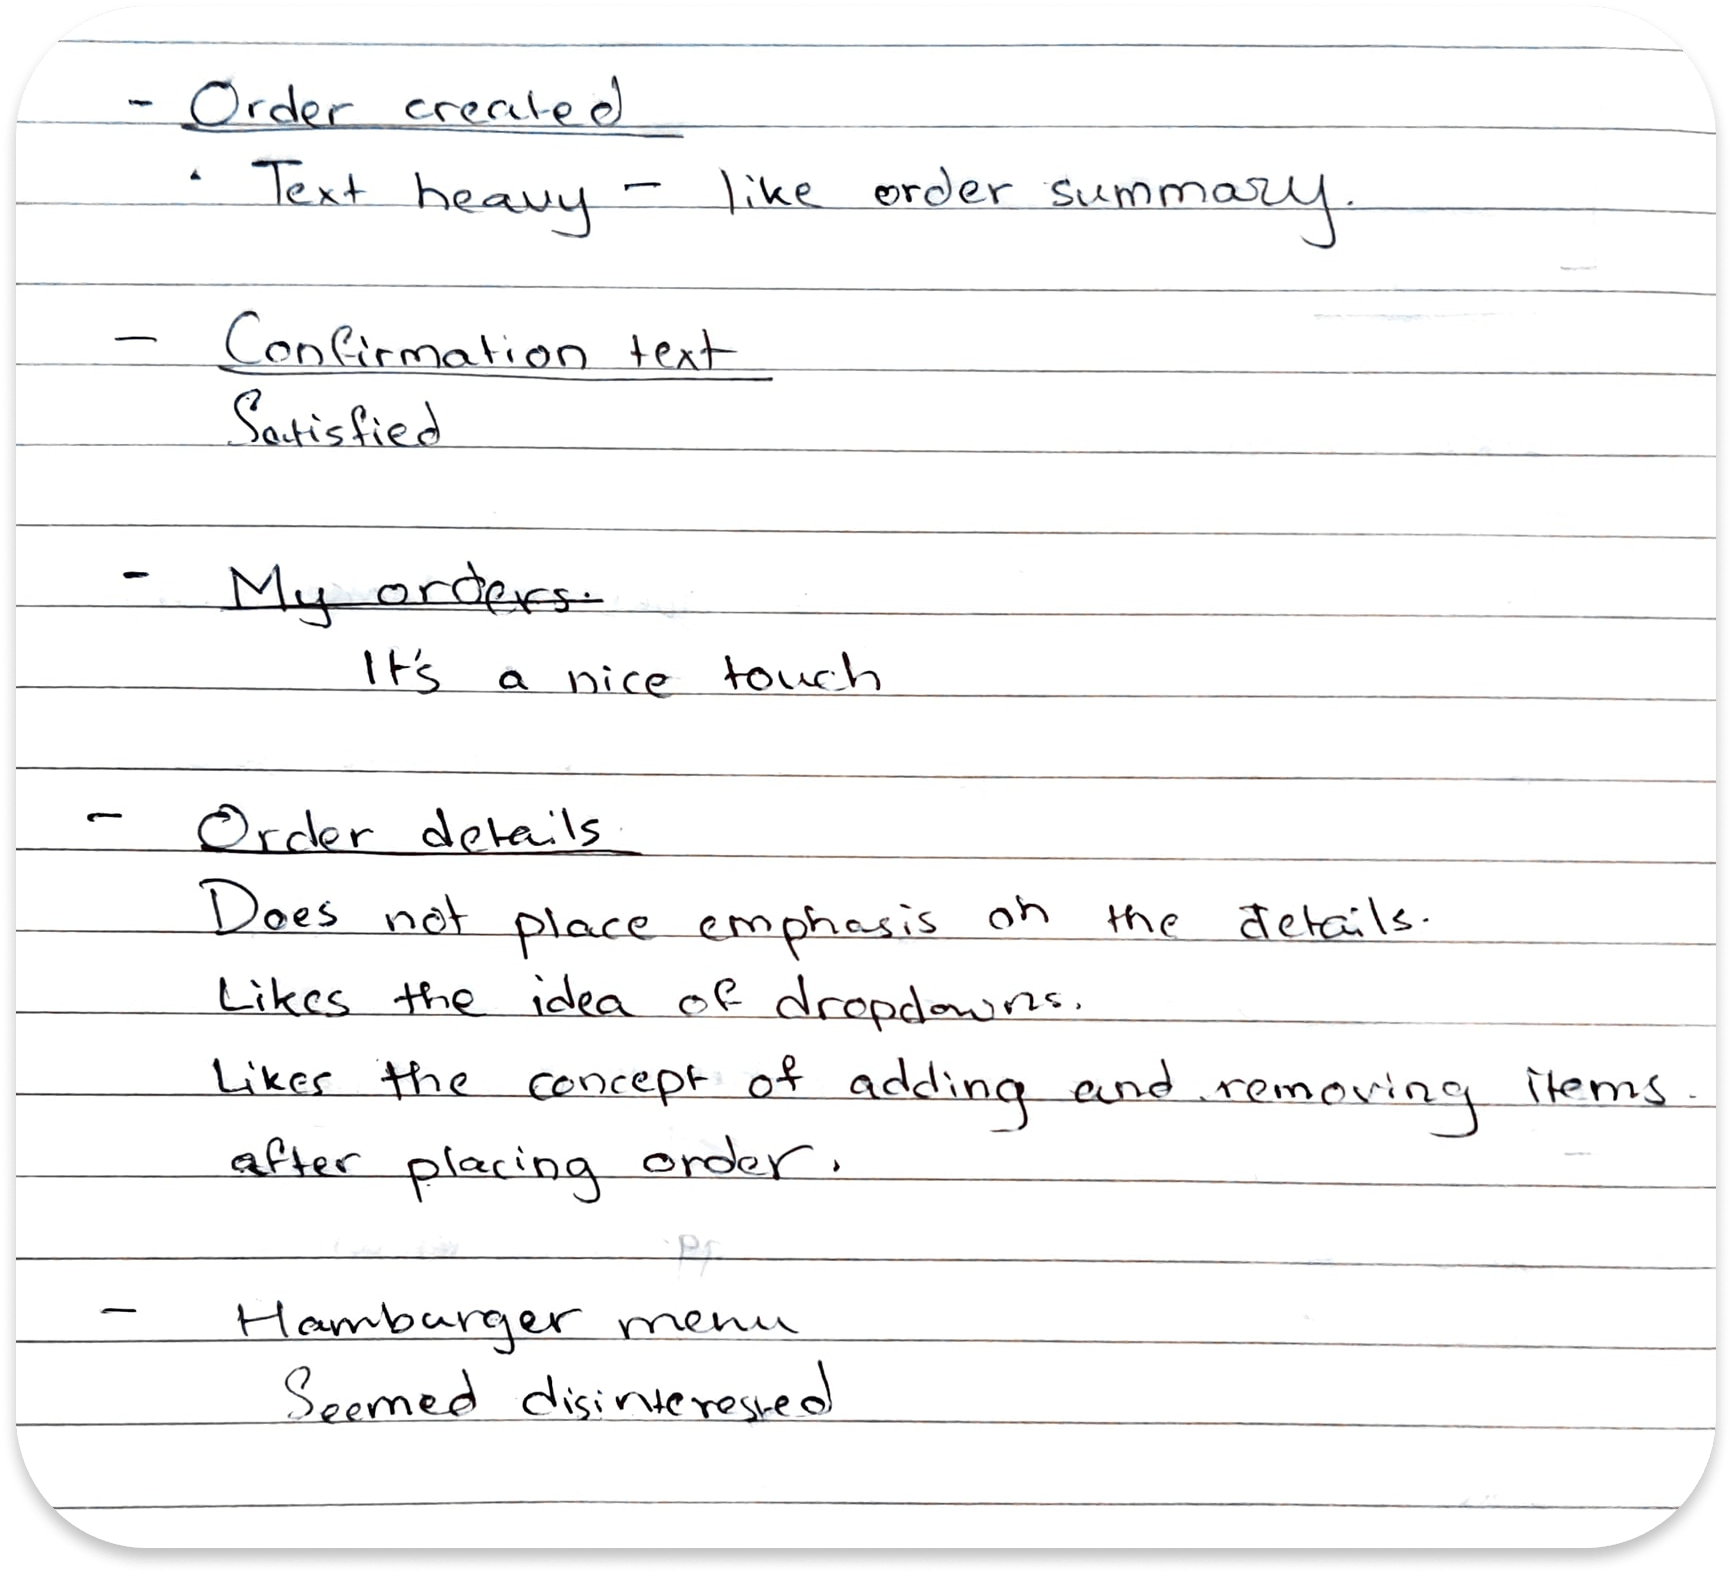 - Order created
· Text heavy - like order summary.
- Confirmation text
Satisfied
- My orders.
It's a nice touch
- Order details
Does not place emphasis on the details.
Likes the idea of dropdowns.
Likes the concept of adding and removing items.
after placing order.
- Hamburger menu
Seemed disinterested